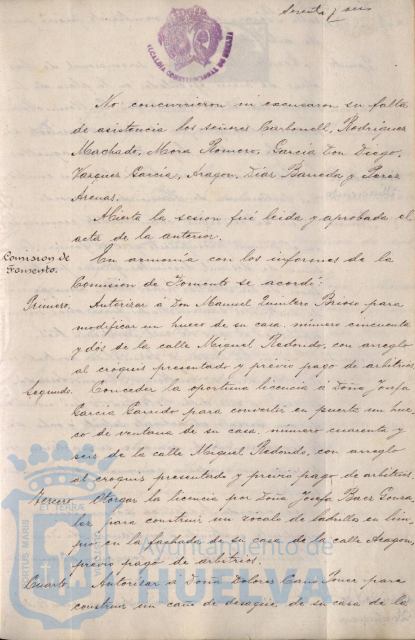 Sesenta y seis
ALCALDIA CONSTITUCIONAL DE HUELVA
No concurrieron ni excusaron su falta
de asistencia los señores Carbonell, Rodriguez
Machado, Mora Romero, Garcia Don Diego,
Vazquez Garcia, Aragon, Diaz Barreda y Perez
Arenas.
Abierta la sesion fué leida y aprobada el
acta de la anterior.
Comision de
Fomento.
En armonía con los informes de la
Comision de Fomento se acordó:
Primero. Autorizar á Don Manuel Quintero Brioso para
modificar un hueco de su casa, número cincuenta
y dos de la calle Miguel Redondo, con arreglo
al croquis presentado y previo pago de arbitrios.
Segundo. Conceder la oportuna licencia á Doña Josefa
Garcia Garrido para convertir en puerta un hue-
co de ventana de su casa, número cuarenta y
seis de la calle Miguel Redondo, con arreglo
al croquis presentado y previo pago de arbitrios.
Tercero. Otorgar la licencia por Doña Josefa Baez Gonza-
lez para construir un zocalo de ladrillos en lim-
pio en la fachada de su casa de la calle Aragon,
previo pago de arbitrios.
Cuarto. Autorizar á Doña Dolores Cano Ponce para
construir un caño de desagüe, de su casa de la
Ayuntamiento de
HUELVA
PORTUS MARIS
ET TERRAE